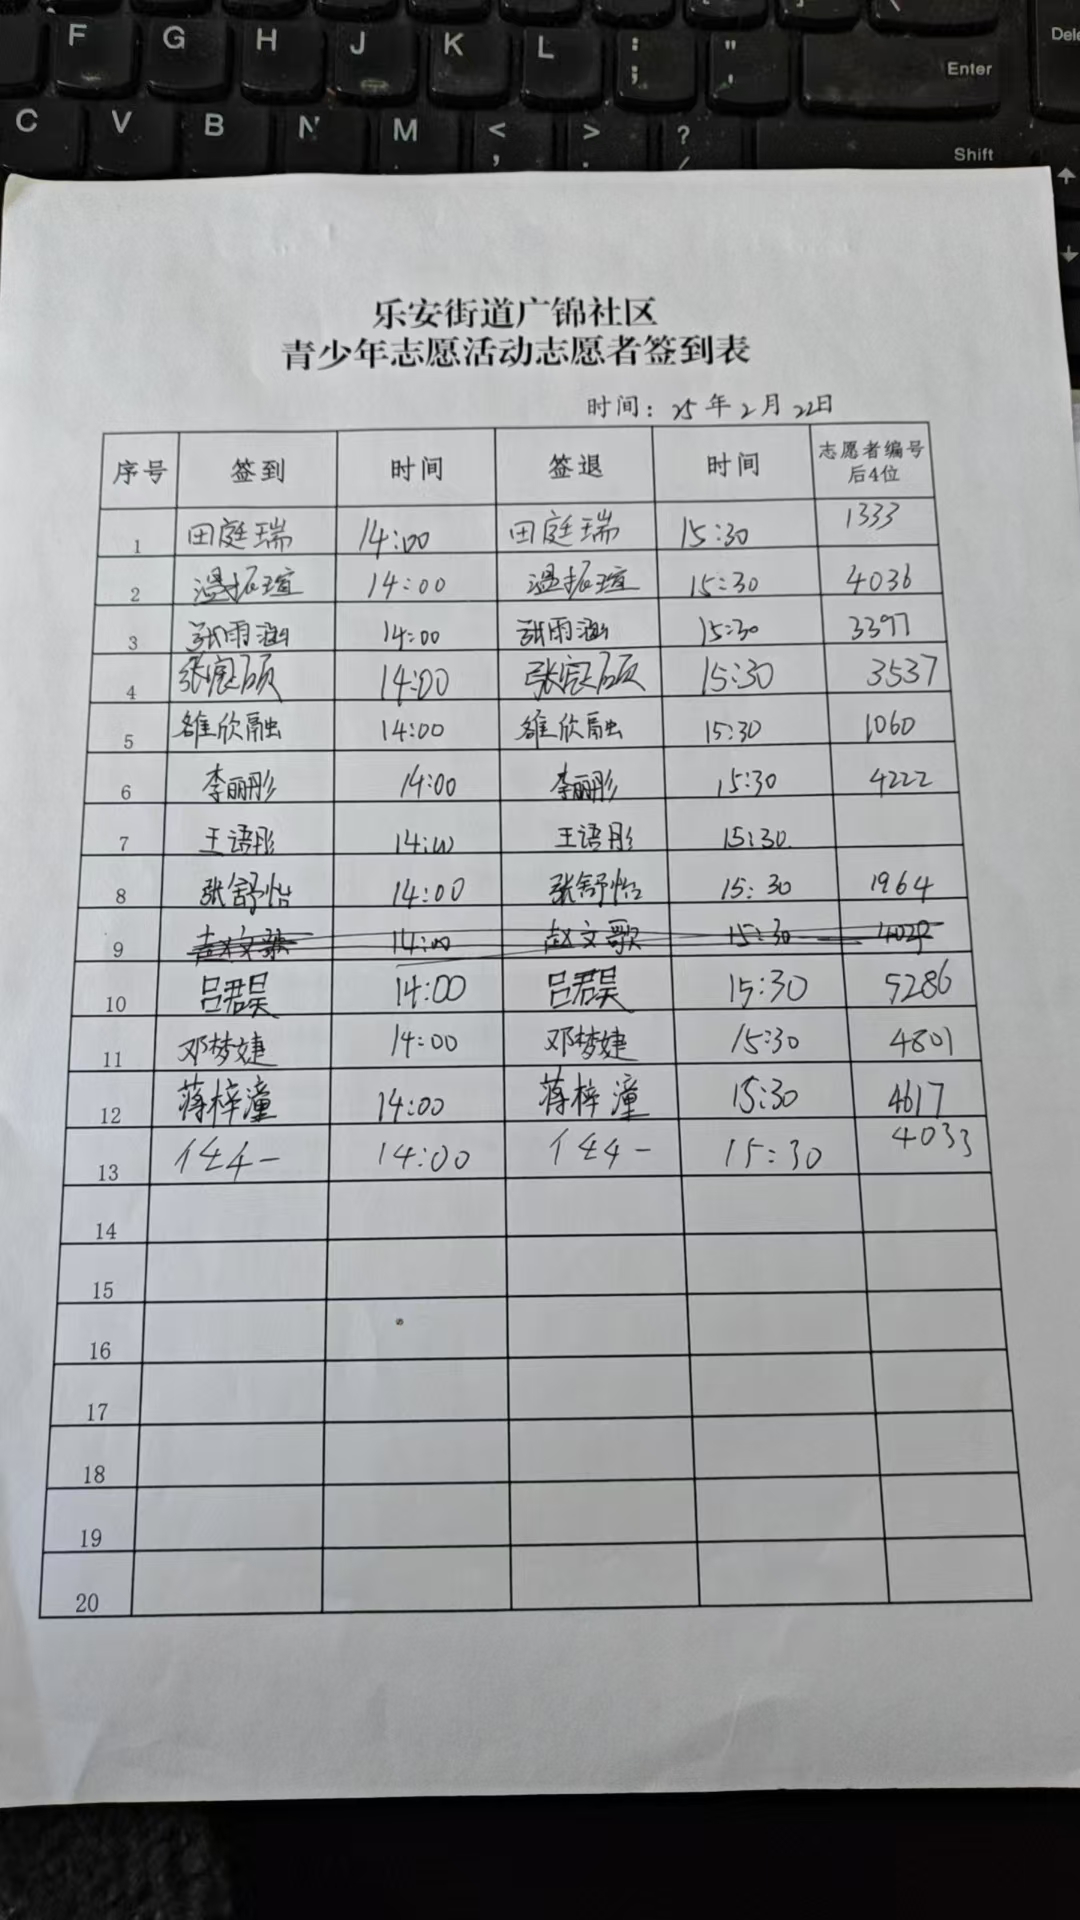 F G H J K L : ; " ' Enter Dele
C V B N M < , > . ? / Shift
乐安街道广锦社区
青少年志愿活动志愿者签到表
时间：25年2月22日
序号 签到 时间 签退 时间 志愿者编号
后4位
1 田庭瑞 14:00 田庭瑞 15:30 1333
2 温振瑄 14:00 温振瑄 15:30 4036
3 张雨涵 14:00 张雨涵 15:30 3397
4 张宸硕 14:00 张宸硕 15:30 3537
5 雒欣融 14:00 雒欣融 15:30 1060
6 李丽彤 14:00 李丽彤 15:30 4222
7 王语彤 14:00 王语彤 15:30
8 张舒怡 14:00 张舒怡 15:30 1964
9 赵文歌 14:00 赵文歌 15:30
10 吕君昊 14:00 吕君昊 15:30 5286
11 邓梦婕 14:00 邓梦婕 15:30 4801
12 蒋梓潼 14:00 蒋梓潼 15:30 4617
13 14:00 15:30 4033
14
15
16
17
18
19
20